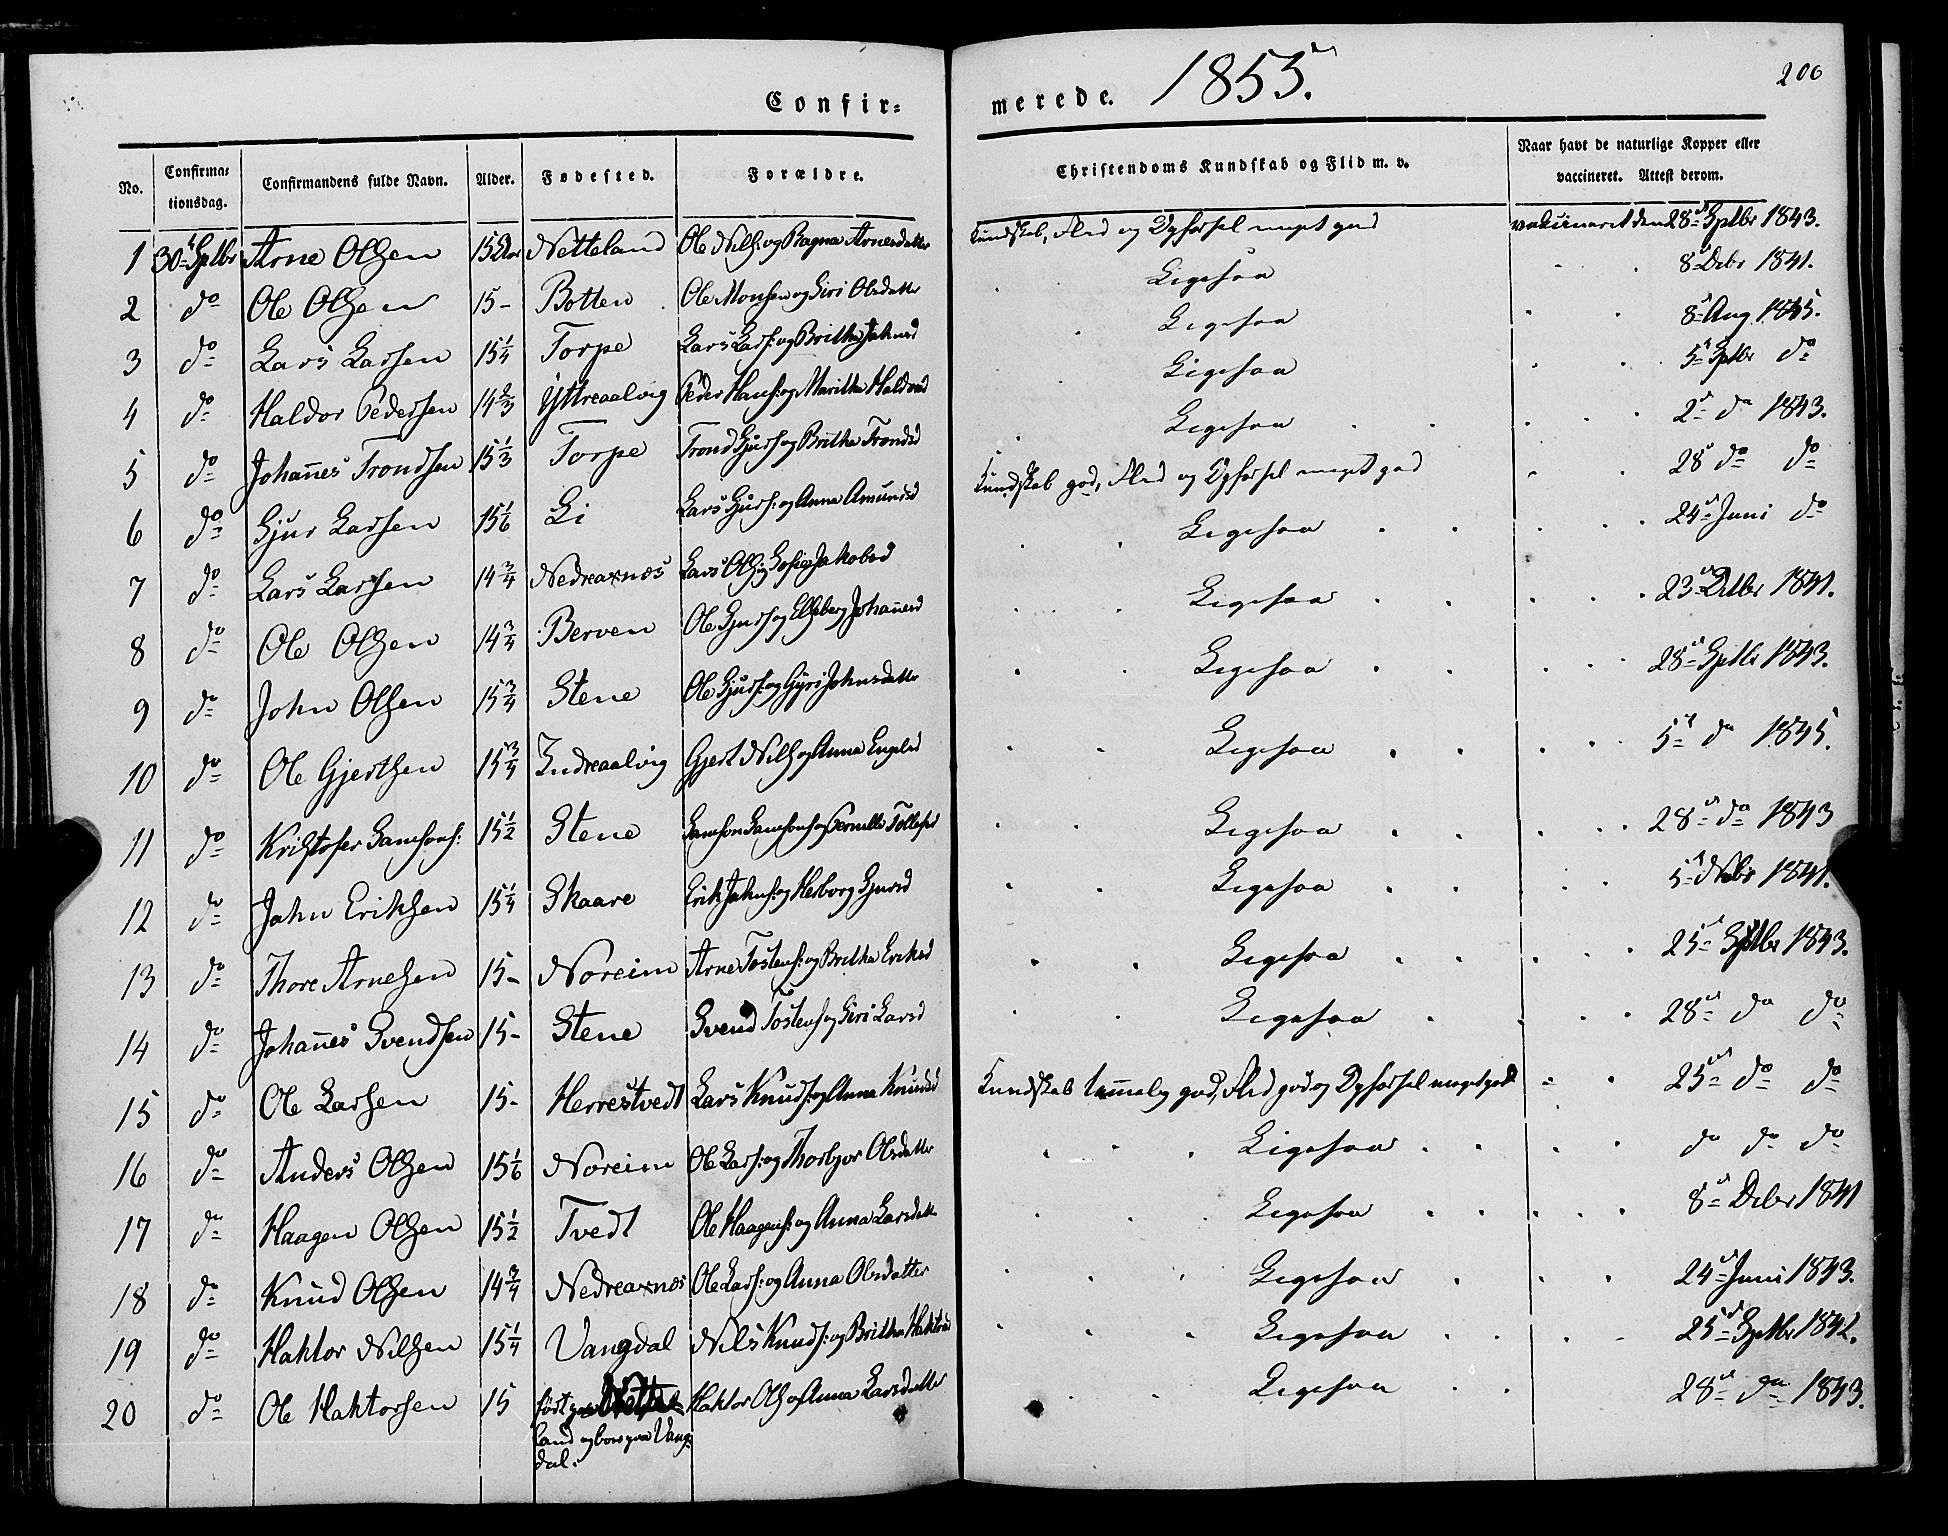 Confir=
merede. 1855.
206
No. Confirma=tionsdag. Confirmandens fulde Navn. Alder. Fødested. Forældre. Christendoms Kundskab og Flid m. v. Naar havt de naturlige Kopper eller vaccineret. Attest derom.
1 30 Sptbr Arne Olsen 15 Netteland Ole Nils: og Ragna Arnesdatter Kundskab, Flid og Opførsel meget god vakcineret den 28 Sptbr 1843.
2 do Ole Olsen 15 - Botten Ole Monsen og Siri Olsdatter Ligesaa 8 Decbr 1841.
3 do Lars Larsen 15 1/4 Torpe Lars Lars: og Britha Johnsd Ligesaa 8 Aug 1845.
4 do Haldor Pedersen 14 2/3 Yttreaalvig Peder Hans: og Maritha Haldorsd Ligesaa 5 Sptbr do
5 do Johannes Trondsen 15 1/3 Torpe Trond Gjurs: og Britha Trondsd Ligesaa 2 do 1843.
6 do Gjur Larsen 15 1/6 Li Lars Gjurs: og Anna Amundsd Kundskab god, Flid og Opførsel meget god 28 do do
7 do Lars Larsen 14 3/4 Nedreaxnes Lars Ols: og Jakobsd Ligesaa 24 Juni do
8 do Ole Olsen 14 3/4 Berven Ole Gjurs: og Elseberg Johannesd Ligesaa 23 1841.
9 do John Olsen 15 3/4 Stene Ole Gjurs: og Gyri Johnsdatter Ligesaa 28 Sptbr 1843.
10 do Ole Gjertsen 15 3/4 Indreaalvig Gjert Nils: og Anna Engelsd Ligesaa 5 do 1845.
11 do Kristofer Samsons: 15 1/2 Stene Samson Samsons: og Pernille Tollefsd Ligesaa 28 do 1843
12 do John Eriksen 15 1/4 Skaare Erik Johns: og Herborg Gjursd Ligesaa 5 Novbr 1841.
13 do Thore Arnesen 15 - Noreim Arne Tostens: og Britha Eriksd Ligesaa 25 Sptbr 1843.
14 do Johannes Svendsen 15 - Stene Svend Tostens: og Siri Larsd Ligesaa 28 do do
15 do Ole Larsen 15 - Herrestvedt Lars Knuds: og Anna Knudsd Kundskab temmelig god, Flid god og Opførsel meget god 25 do do
16 do Anders Olsen 15 1/6 Noreim Ole Lars: og Thorbjør Olsdatter Ligesaa do do do
17 do Haagen Olsen 15 1/2 Tvedt Ole Haagens: og Anna Larsdatter Ligesaa 8 Decbr 1841
18 do Knud Olsen 14 3/4 Nedreaxnes Ole Lars: og Anna Olsdatter Ligesaa 24 Juni 1843.
19 do Haktor Nilsen 15 1/4 Vangdal Nils Knuds: og Britha Haktorsd Ligesaa 25 Sptbr 1842.
20 do Ole Haktorsen 15 født paa Nette= Haktor Ols: og Anna Larsdatter Ligesaa 28 do 1843.
land og boer paa Vang=
dal.